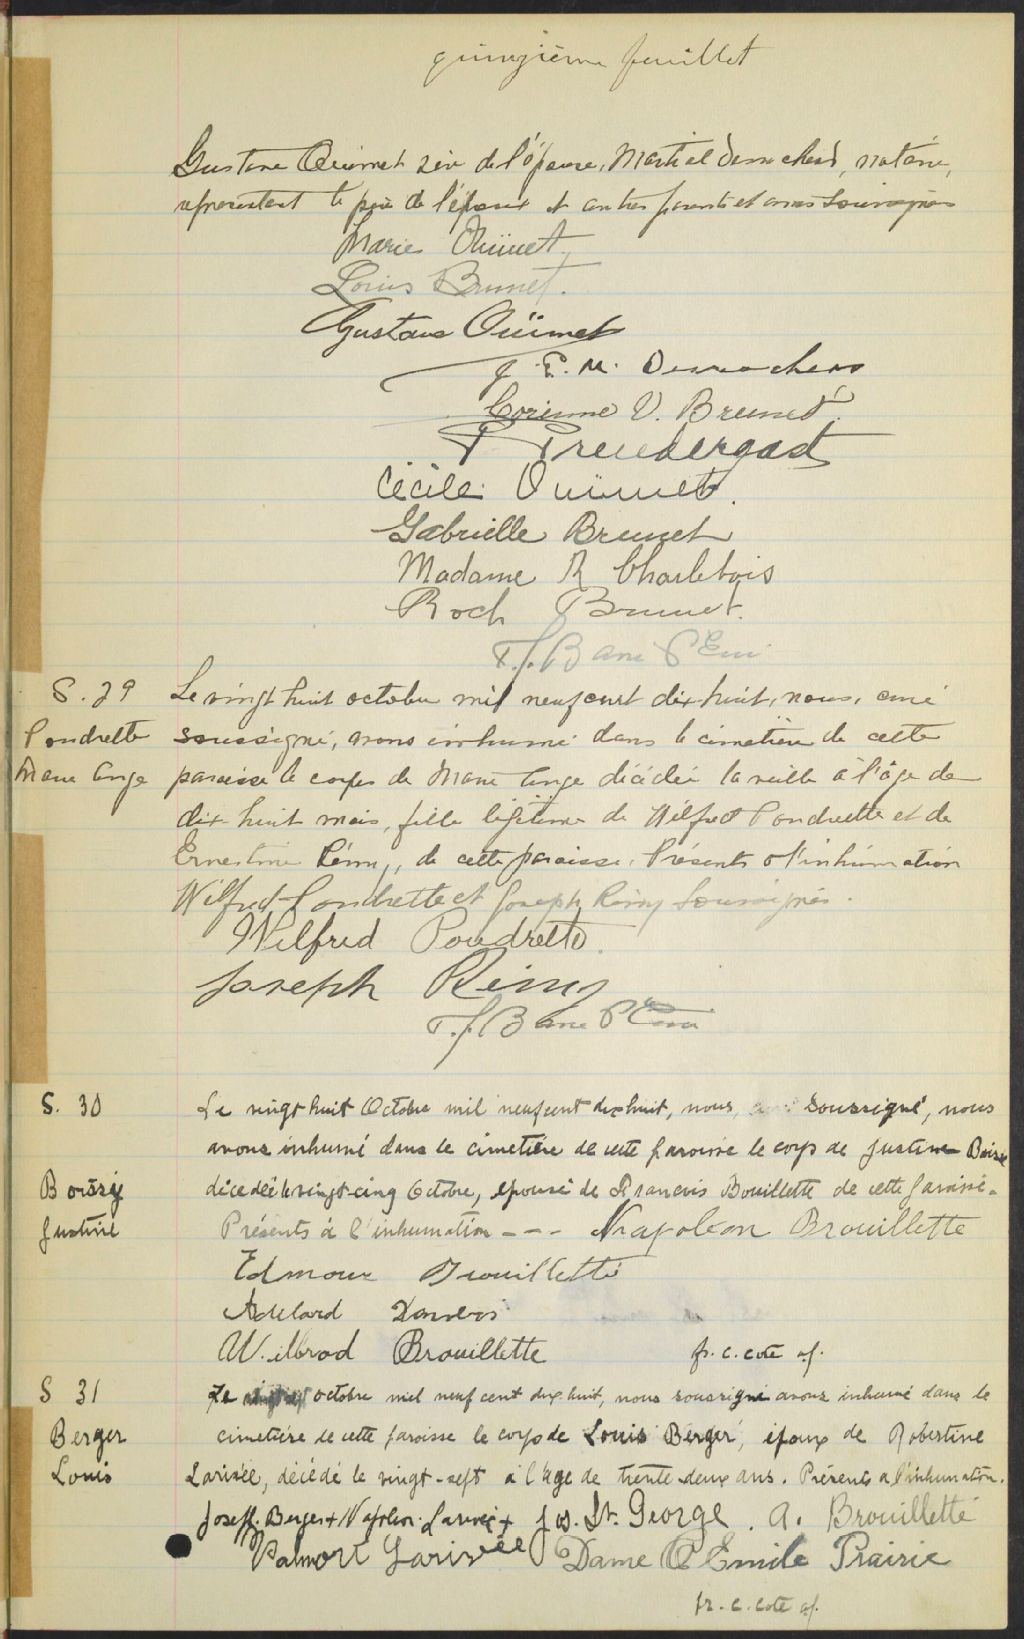 quinzième feuillet
Gustave Ouimet père de l'épouse, Martial Desrochers, notaire,
représentant le père de l'époux et autres parents et amis soussignés
Marie Ouimet
Louis Brunet.
Gustave Ouimet
J. E. M. Desrochers
Corinne V. Brunet.
P Prendergast
Cécile Ouimet.
Gabrielle Brunet
Madame R Charlebois
Roch Brunet.
S. 29
Poudrette
Marie Ange
Le vingt huit octobre mil neuf cent dix huit, nous, curé
soussigné, avons inhumé dans le cimetière de cette
paroisse le corps de Marie Ange décédée la veille à l'âge de
dix-huit mois, fille légitime de Wilfred Poudrette et de
Ernestine Rémy, de cette paroisse. Présents à l'inhumation
Wilfred Poudrette et Joseph Rémy soussignés.
Wilfred Poudrette.
Joseph Remy
S. 30
Justine
Le vingt huit Octobre mil neuf cent dix huit, nous, soussigné, nous
avons inhumé dans le cimetière de cette paroisse le corps de Justine
décedée le vingt-cinq Octobre, epouse de Francois Bouillette de cette paroisse.
Présents à l'inhumation --- Napoléon Brouillette
Edmour Brouillette
Adelard
Wilbrod Brouillette fr. c. cote of.
S 31
Berger
Louis
Le octobre mil neuf cent dix huit, nous soussigné avons inhumé dans le
cimetière de cette paroisse le corps de Louis Berger, epoux de Robertine
Larivée, décédé le vingt-sept à l'age de trente-deux ans. Présents a l'inhumation.
Joseph Berger + Napoleon Larivée + Jos. St. George. A. Brouillette
Palmore Larivée Dame O Emile Prairie
fr. c. cote of.